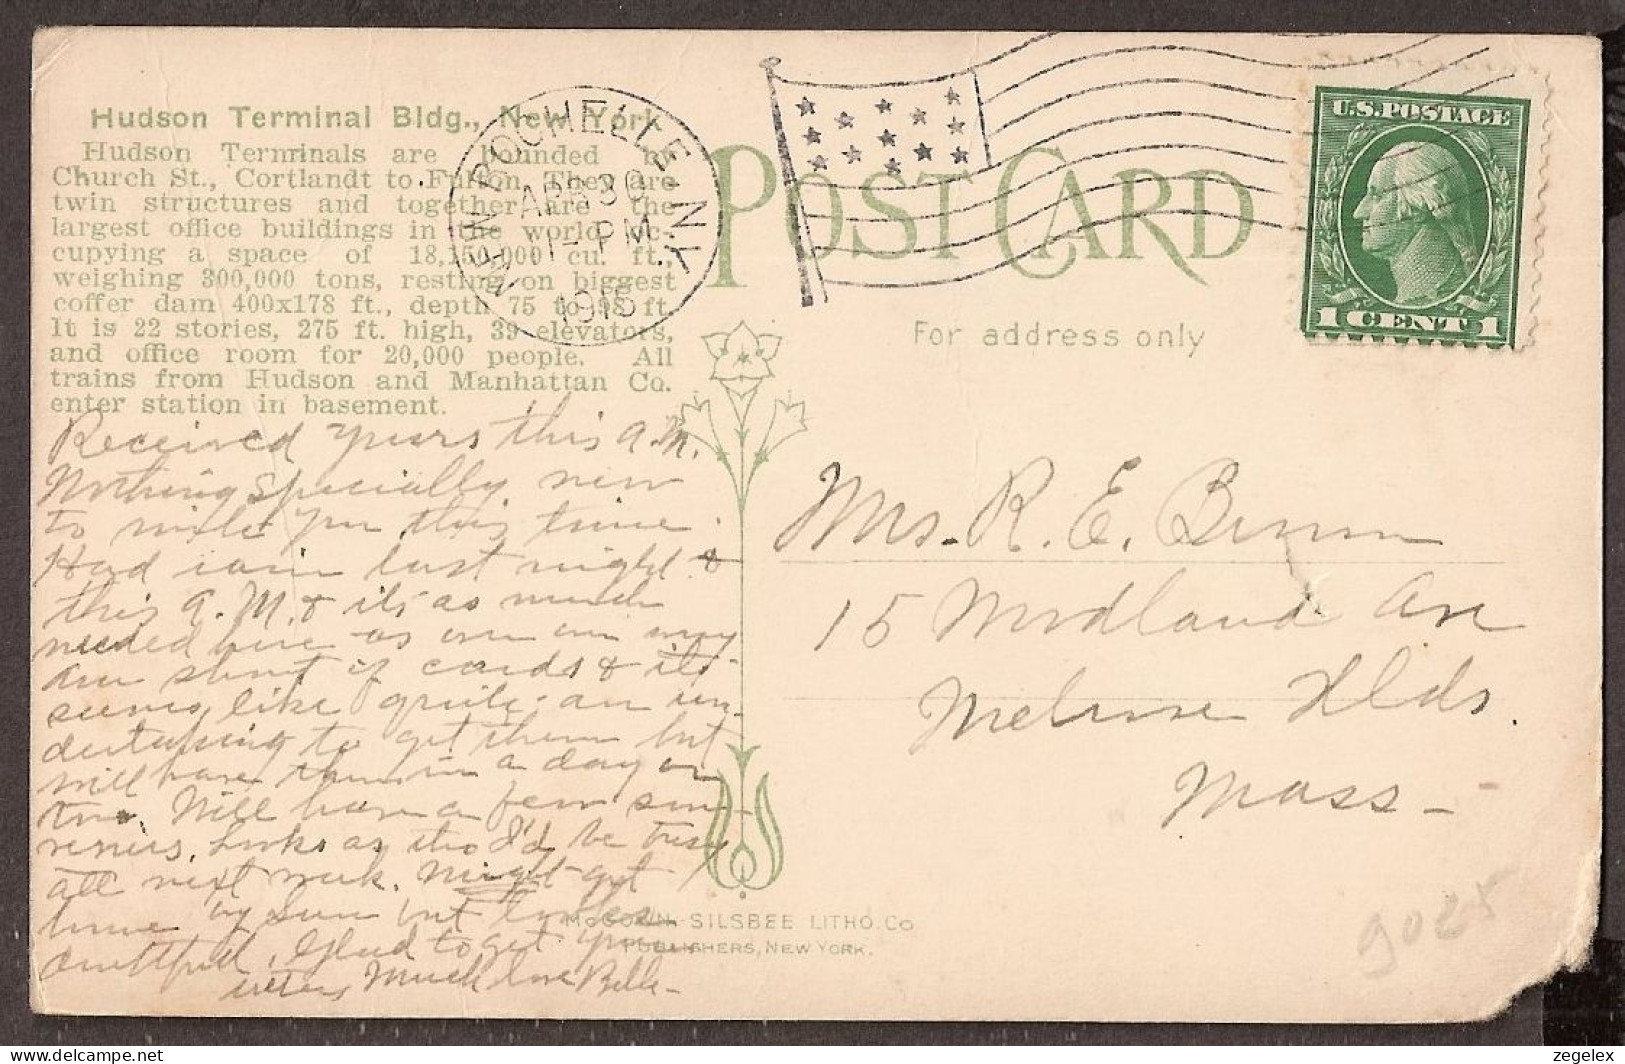 Hudson Terminal Bldg., New York
Hudson Terminals are bounded by
Church St., Cortlandt to Fulton. They are
twin structures and together are the
largest office buildings in the world, oc-
cupying a space of 18,150,000 cu. ft.,
weighing 300,000 tons, resting on biggest
coffer dam 400x178 ft., depth 75 to 98 ft.
It is 22 stories, 275 ft. high, 39 elevators,
and office room for 20,000 people. All
trains from Hudson and Manhattan Co.
enter station in basement.
NEW ROCHELLE N.Y.
APR 30
1- PM
1915
POST CARD
For address only
U.S. POSTAGE
1 CENT 1
Received yours this a.m.
Nothing specially new
to write you this time.
Had rain last night &
this a.m. & its as much
needed here as
Am short of cards & it
seems like quite an un-
dertaking to get them but
will have them in a day or
two. Will have a few sou-
veniers. Looks as tho I'd be busy
all next week. Might get
home by Sun but looks
doubtful. Glad to get your
letters Much love Belle-
Mrs. R. E. Brown
15 Woodland Ave
Melrose Hlds.
Mass-
SILSBEE LITHO. Co
PUBLISHERS, NEW YORK.
9025
www.delcampe.net
zegelex